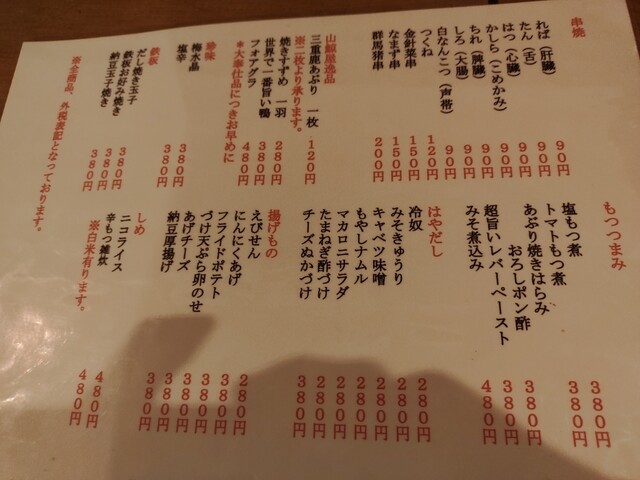 串焼
れば（肝臓） 90円
たん（舌） 90円
はつ（心臓） 90円
かしら（こめかみ） 90円
ちれ（脾臓） 90円
しろ（大腸） 90円
白なんこつ（声帯） 90円
つくね 120円
金針菜串 150円
なまず串 150円
群馬串 200円
山鯨屋逸品
三重鹿あぶり 一枚 120円
※二枚より承ります。
焼きすずめ 一羽 280円
世界で一番旨い鴨 380円
フォアグラ 480円
＊大奉仕品につきお早めに
珍味
梅水晶 380円
塩辛 380円
鉄板
だし焼き玉子 380円
鉄板お好み焼き 380円
納豆玉子焼き 380円
※全商品、外税表記となっております。
もつつまみ
塩もつ煮 380円
トマトもつ煮 380円
あぶり焼きはらみ
おろしポン酢 380円
超旨いレバーペースト 380円
みそ煮込み 480円
はやだし
冷奴 280円
みそきゅうり 280円
キャベツ味噌 280円
もやしナムル 280円
マカロニサラダ 280円
たまねぎ酢づけ 280円
チーズぬかづけ 380円
揚げもの
えびせん 280円
にんにくあげ 380円
フライドポテト 380円
づけ天ぷら卵のせ 380円
あげチーズ 380円
納豆厚揚げ 380円
しめ
ニコライス 480円
辛もつ雑炊 480円
※白米有ります。